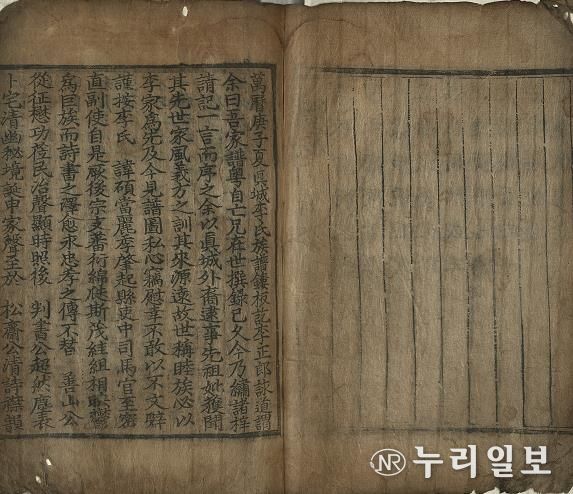 萬曆庚子夏眞城李氏族譜鏤板訖李正郞詠道謂
余曰吾家譜粤自亡兄在世撰錄已久今乃繡諸梓
請記一言而序之余以眞城外裔逮事先祖妣獲聞
其先世家風義方之訓其來源遠故世稱睦族必以
李家爲先及今見譜圖私心竊慰幸不敢以不文辭
謹按李氏 諱碩當麗季肇起縣吏中司馬官至密
直副使自是厥後宗支蕃衍綿綿斯茂組相
爲巨族而詩書之澤愈永忠孝之傳不替 善山公
從征懋功莅民治聲顯時照後 判書公超然塵表
卜宅淸幽秘境誕申家聲至於 松齋公淸詩襟韻
누리일보